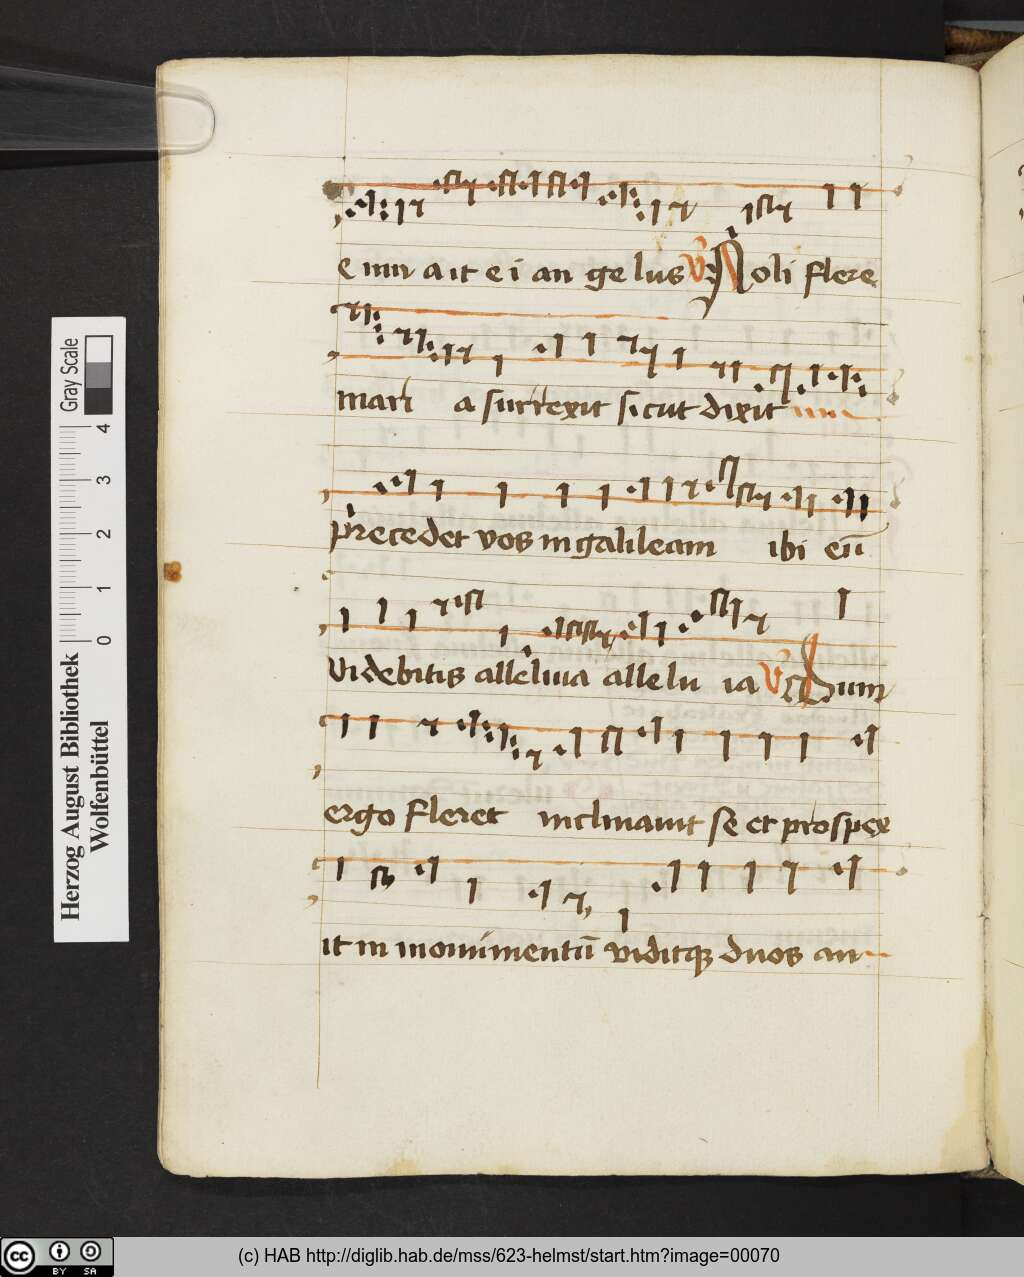 e inn ait e i an ge lus V Noli flere
mari a surrexit sicut dixit
precedet vos in galileam ibi eū
videbitis alleluia allelu ia V Dum
ergo fleret inclinauit se et prospex
it in monumentū viditq duos an
Gray Scale
4
3
2
1
0
Herzog August Bibliothek
Wolfenbüttel
cc BY SA
(c) HAB http://diglib.hab.de/mss/623-helmst/start.htm?image=00070